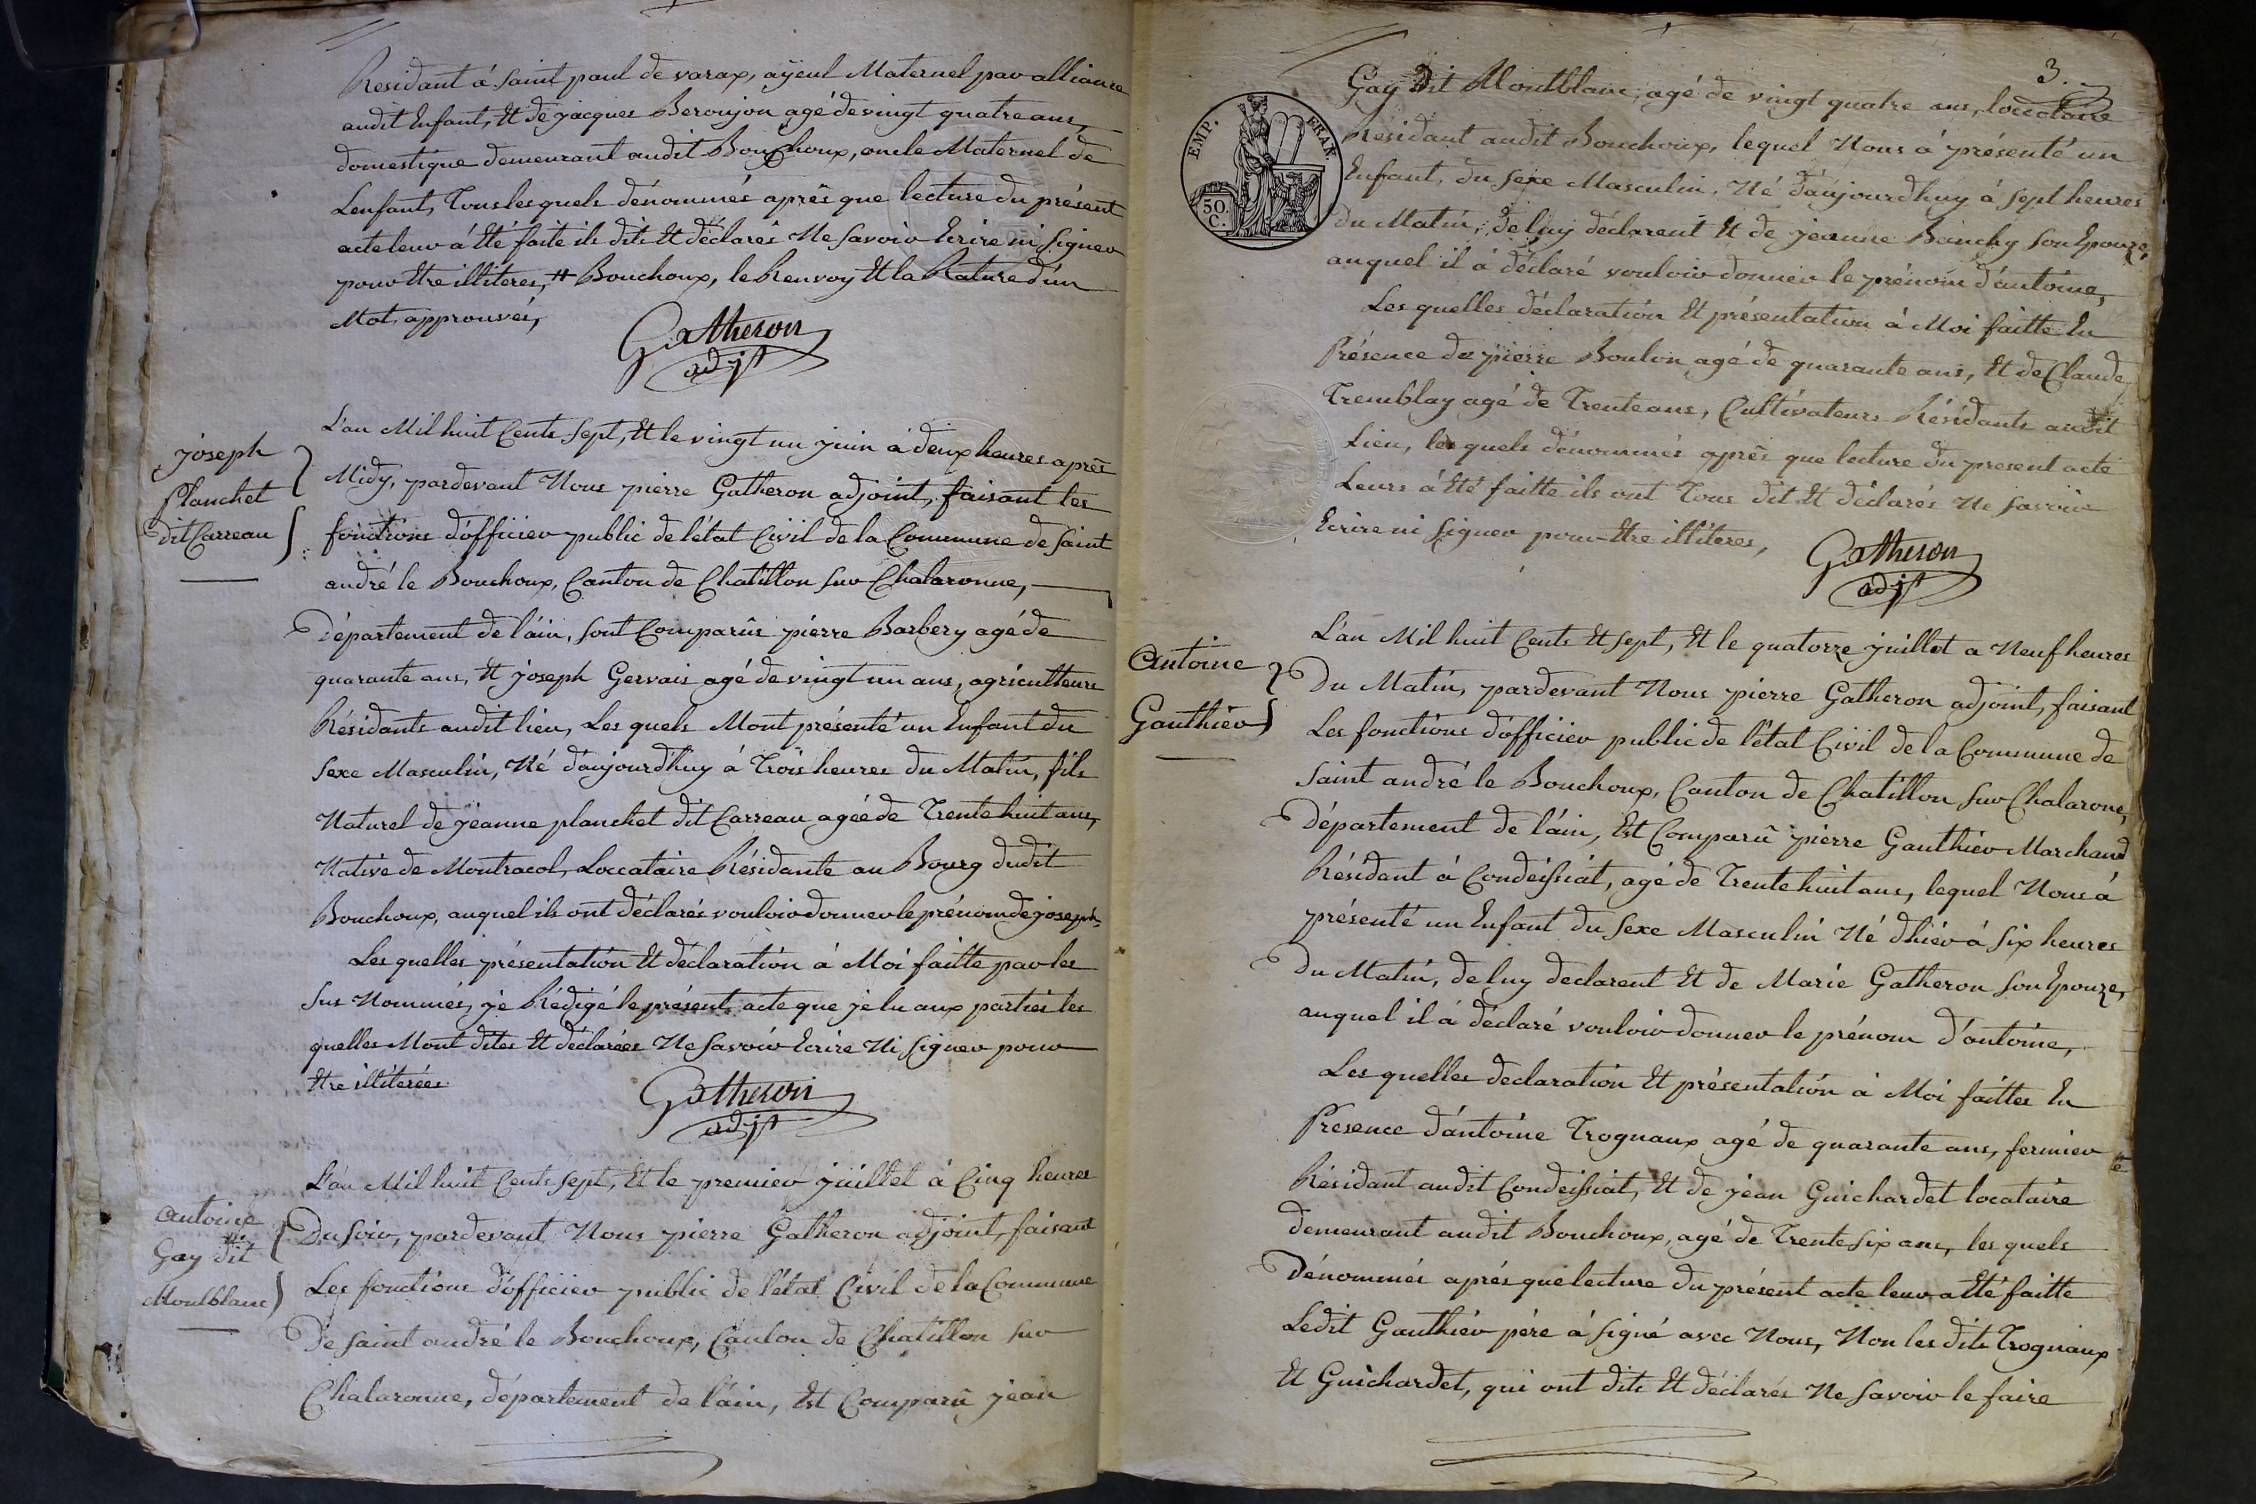 Residant á Saint paul de varax, aÿeul Maternel par alliance
audit Enfant, Et de jacques Beroujon agé de vingt quatre ans,
domestique demeurant audit Bouchoux, oncle Maternel de
Lenfant, Tous les quels dénommés aprês que lecture du présent
acte leur á Eté faite ils dits Et déclarés Ne Savoir Ecrire ni Signer
pour Etre illiteres, # Bouchoux, le Renvoy Et la Rature d'un
Mot, approuvés,
Gatheron
adjt
joseph
Planchet
dit Carreau
L'an Mil huit Cents Sept, Et le vingt un juin à deux heures aprês
Midy, pardevant Nous pierre Gatheron adjoint, faisant les
fonctions d'officier public de l'état Civil de la Commune de Saint
andré le Bouchoux, Canton de Chatillon Sur Chalaronne,
Département de l'ain, Sont Comparûs pierre Barbery agé de
quarante ans, Et joseph Gervais agé de vingt un ans, agriculteurs
Résidants audit lieu, Les quels Mont présenté un Enfant du
Sexe Masculin, Né d'aujourd'huy á Trois heures du Matin, fils
Naturel de jeanne planchet dit Carreau agéé de Trente huit ans,
Native de Montracol, Loccataire Résidante au Bourg dudit
Bouchoux, auquel ils ont déclarés vouloir donner le prénom de joseph,
Les quelles présentation Et déclaration á Moi faitte par les
Sus Nommés, je Rédigé le présent acte que je lu aux parties les
quelles Mont dites Et déclarées Ne Savoir Ecrire Ni Signer pour
Etre illiterées
Gatheron
adjt
Antoine
Gay dit
Montblanc
L'an Mil huit Cents Sept, Et le premier juillet á Cinq heures
Du Soir, pardevant Nous pierre Gatheron adjoint, faisant
Les fonctions d'officier public de l'état Civil de la Commune
De Saint andré le Bouchoux, Canton de Chatillon Sur
Chalaronne, département de l'ain, Est Comparû jean
3.
EMP. FRAN.
50. C.
Gay Dit Montblanc, agé de vingt quatre ans, loccataire
Résidant audit Bouchoux, lequel Nous á présenté un
Enfant, du Sexe Masculin, Né d'aujourdhuy á Sept heures
du Matin, de luy déclarent Et de jeanne Banchy Son Epouze,
auquel il á déclaré vouloir donner le prénom d'antoine,
Les quelles déclaration Et présentation á Moi faitte En
Présence de pierre Boulon agé de quarante ans, Et de Claude
Tremblay agé de Trente ans, Cultivateurs Résidants audit
Lieu, les quels dénommés aprês que lecture du present acte
Leurs á Eté faitte ils ont Tous dit Et déclarés Ne Savoir
Ecrire ni Signer pour Etre illiteres,
Gatheron
adjt
Antoine
Gauthier
L'an Mil huit Cents Et Sept, Et le quatorze juillet a Neuf heures
Du Matin, pardevant Nous pierre Gatheron adjoint, faisant
Les fonctions d'officier public de l'état Civil de la Commune de
Saint andré le Bouchoux, Canton de Chatillon Sur Chalarone,
Département de l'ain, Est Comparû pierre Gauthier Marchand
Résidant á Condeissiat, agé de Trente huit ans, lequel Nous á
présenté un Enfant du Sexe Masculin Né dhiér á Six heures
Du Matin, de luy declarent Et de Marie Gatheron Son Epouze,
auquel il á déclaré vouloir donner le prénom d'antoine,
Les quelles declaration Et présentation á Moi faittes En
Presence d'antoine Trognaux agé de quarante ans, fermier
Résidant audit Condeissiat, Et de jean Guichardet locataire
demeurant audit Bouchoux, agé de Trente Six ans, les quels
Dénommés aprés que lecture du présent acte leur a Eté faitte
Ledit Gauthiér pére á Signé avec Nous, Non les dits Trognaux
Et Guichardet, qui ont dits Et déclarés Ne Savoir le faire